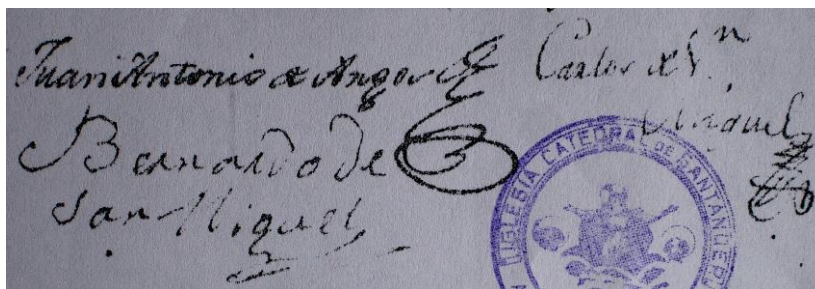 Juan Antonio de Angos
Carlos de Sn
Miguel
Bernardo de
San Miguel
IGLESIA CATEDRAL DE SANTANDER